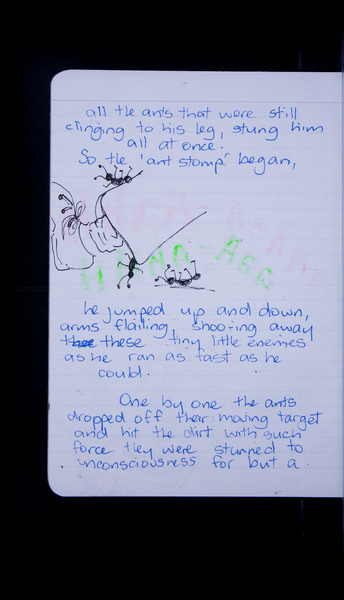 all the ants that were still
clinging to his leg, stung him
all at once.
So the "ant stomp" began,
he jumped up and down,
arms flailing, shoo-ing away
these tiny little enemies
as he ran as fast as he
could.
One by one the ants
dropped off their moving target
and hit the dirt with such
force they were stunned to
unconsciousness for but a